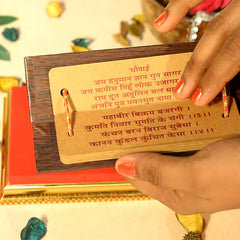 चौपाई
जय हनुमान ज्ञान गुन सागर
जय कपीस तिहुँ लोक उजागर
राम दूत अतुलित बल धामा
अंजनि पुत्र पवनसुत नामा
महाबीर बिक्रम बजरंगी
कुमति निवार सुमति के संगी
कंचन बरन बिराज सुबेसा
कानन कुंडल कुंचित केसा